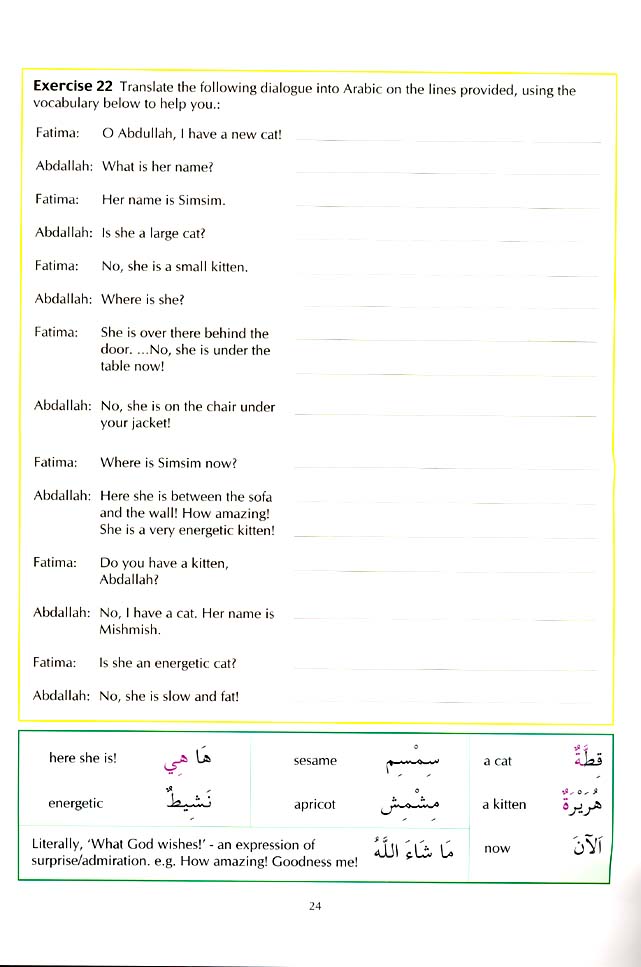 Exercise 22 Translate the following dialogue into Arabic on the lines provided, using the
vocabulary below to help you.:
Fatima: O Abdullah, I have a new cat!
Abdallah: What is her name?
Fatima: Her name is Simsim.
Abdallah: Is she a large cat?
Fatima: No, she is a small kitten.
Abdallah: Where is she?
Fatima: She is over there behind the
door. ...No, she is under the
table now!
Abdallah: No, she is on the chair under
your jacket!
Fatima: Where is Simsim now?
Abdallah: Here she is between the sofa
and the wall! How amazing!
She is a very energetic kitten!
Fatima: Do you have a kitten,
Abdallah?
Abdallah: No, I have a cat. Her name is
Mishmish.
Fatima: Is she an energetic cat?
Abdallah: No, she is slow and fat!
here she is! هَا هِي sesame سِمْسِم a cat قِطَّةٌ
energetic نَشِيطٌ apricot مِشْمِش a kitten هُرَيْرَةٌ
Literally, 'What God wishes!' - an expression of
surprise/admiration. e.g. How amazing! Goodness me! مَا شَاءَ اللَّهُ now اَلْآنَ
24